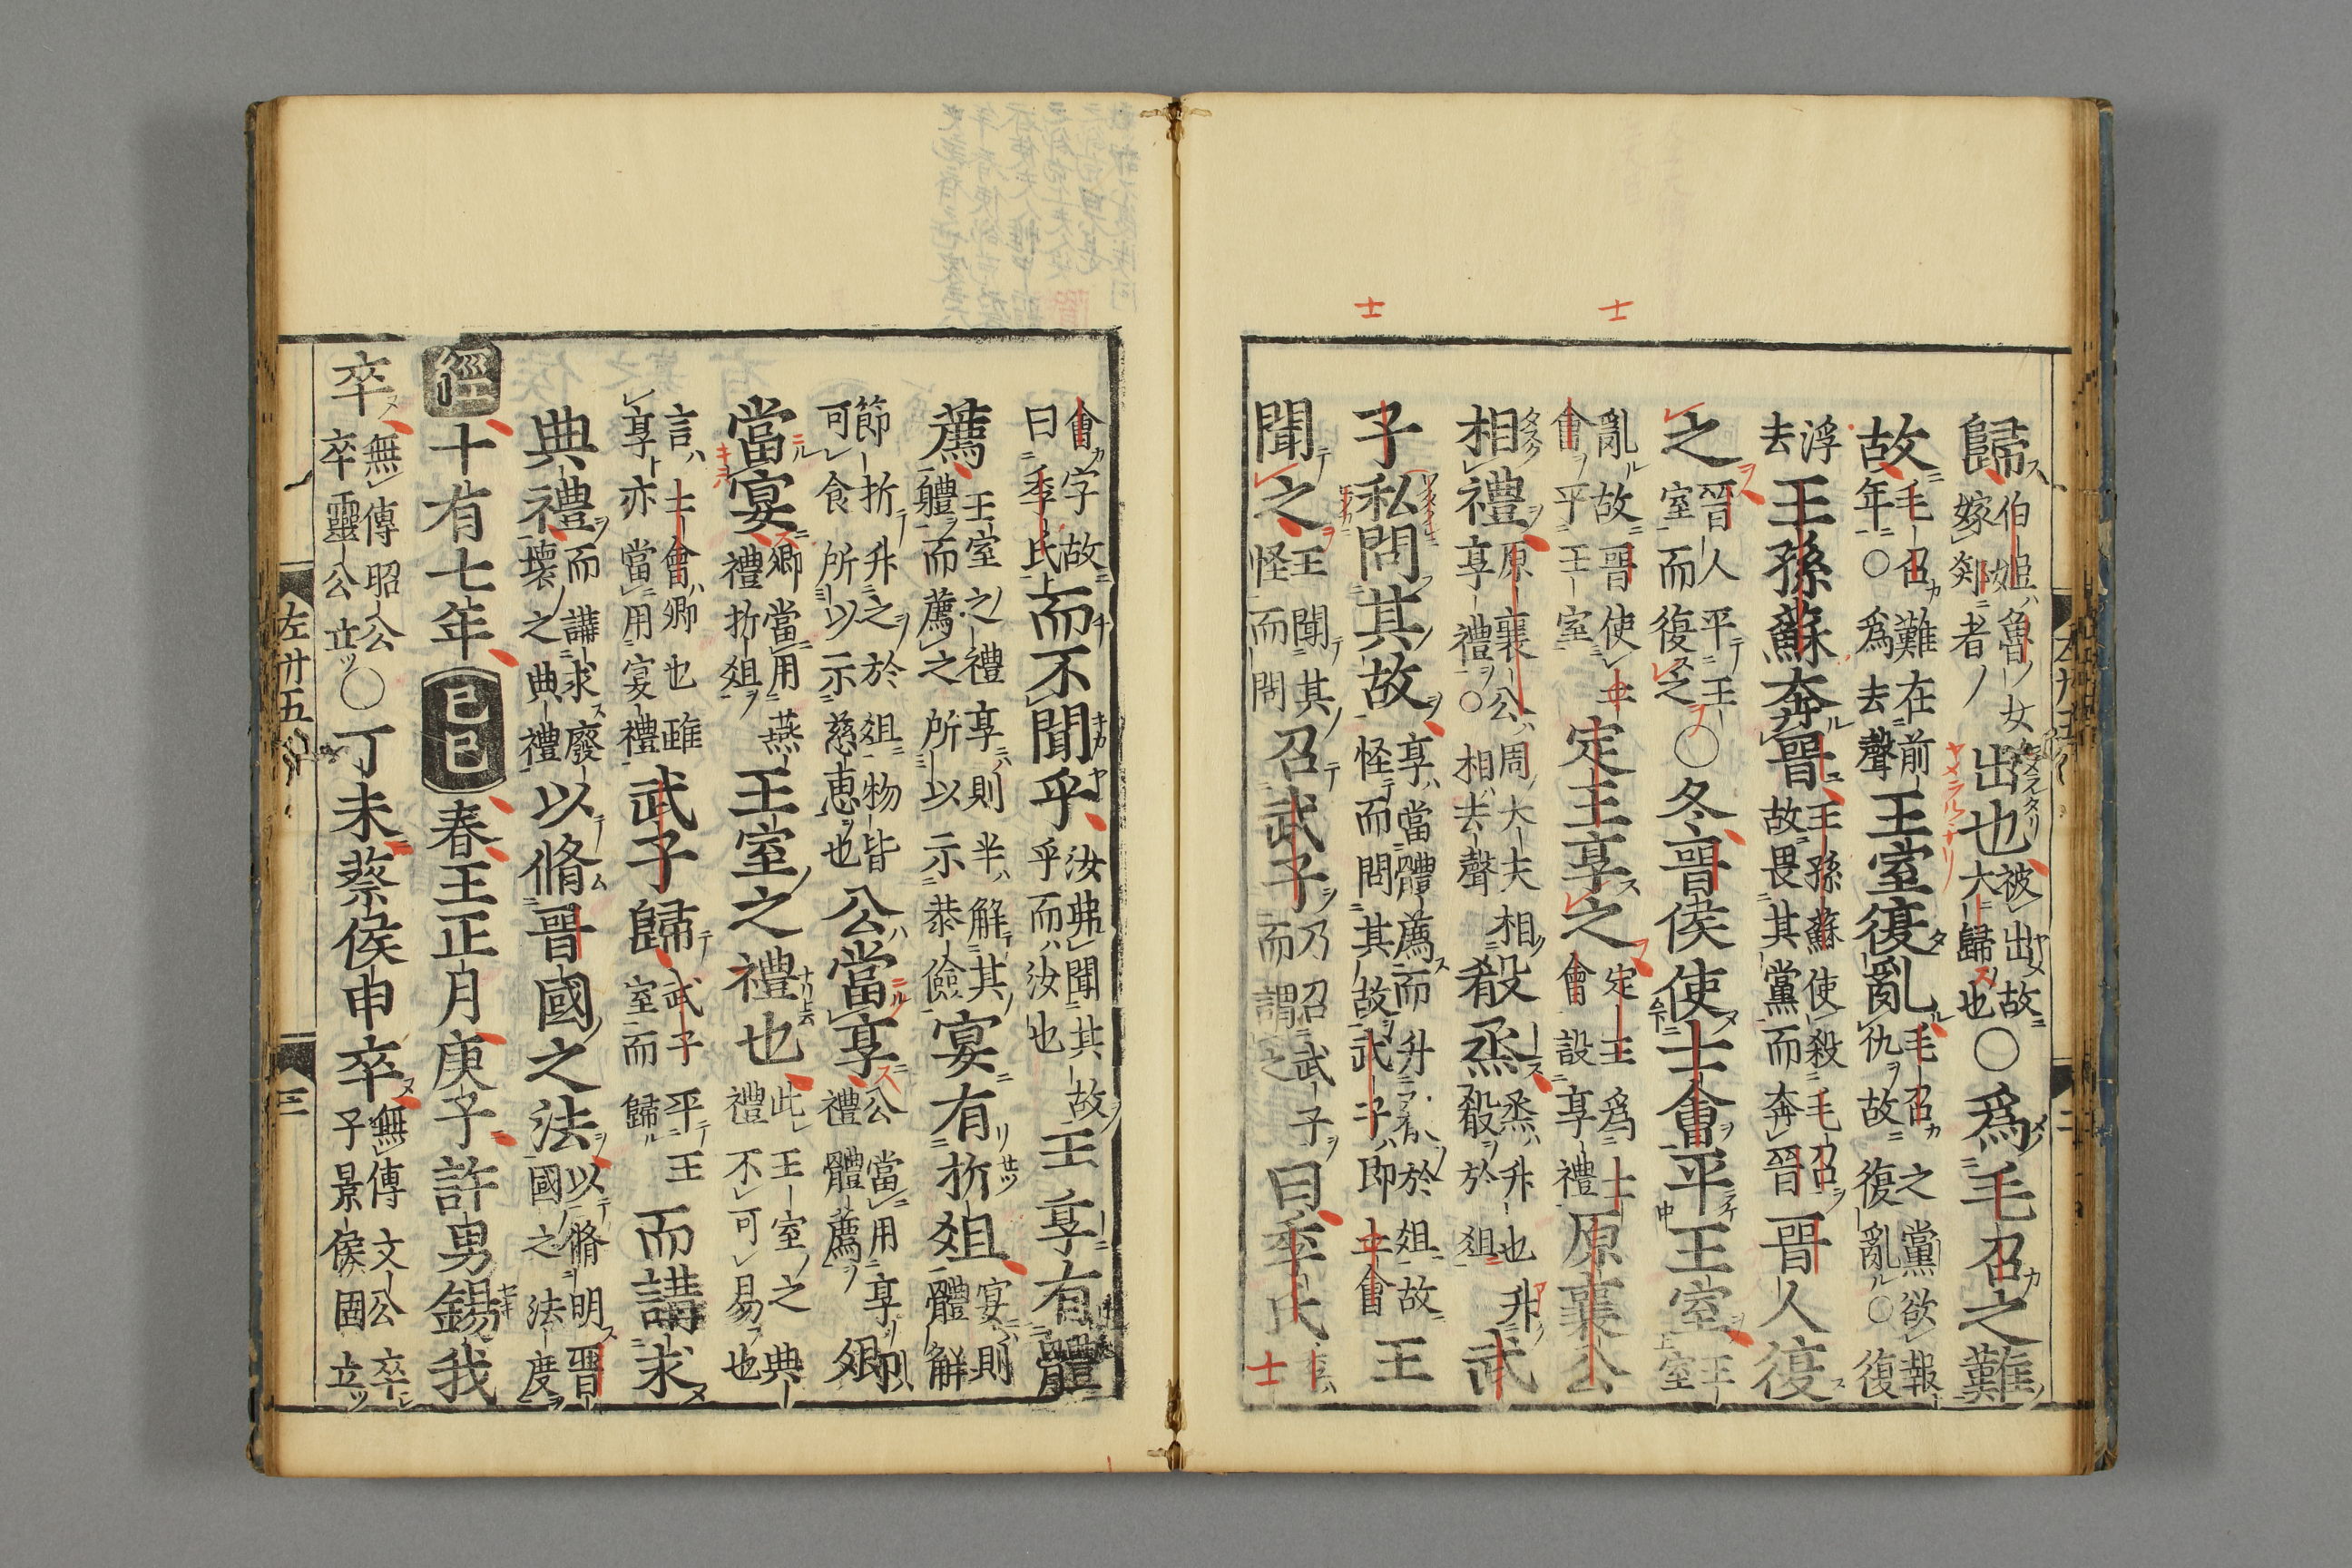 歸伯姬魯女嫁郯者出也被出故大歸也○爲毛召之難
故毛召難在前年○爲去聲王室復亂毛召之黨欲報仇故復亂○復
浮去王孫蘇奔晉王孫蘇使殺毛召故畏其黨而奔晉晉人復
之晉人平王室而復之○冬晉侯使士會平王室王室
亂故晉使士會平王室定王享之定王爲士會設享禮原襄公
相禮原襄公周大夫相享禮○相去聲殽烝烝升也升殽於俎武
子私問其故享當體薦而升殽於俎故怪而問其故武子即士會王
聞之王聞其怪而問召武子乃召武子而謂之曰季氏
士
士
士
會字故曰季氏而不聞乎汝弗聞其故乎而汝也王享有體
薦王室之禮享則半解其體而薦之所以示恭儉宴有折俎宴則體解
節折升之於俎物皆可食所以示慈惠也公當享公當用享禮體薦卿
當宴卿當用燕禮折俎王室之禮也此王室之典禮不可易也
言士會卿也雖享亦當用宴禮武子歸武子平王室而歸而講求
典禮而講求廢壞之典禮以脩晉國之法以脩明晉國之法度
經十有七年己巳春王正月庚子許男錫我
卒無傳昭公卒靈公立○丁未蔡侯申卒無傳文公卒子景侯固立
左廿五 三